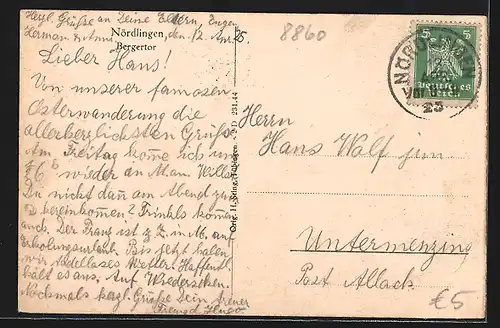 Herzl. Grüße an Deine Eltern, Eugen
Hermann
Nördlingen, den 12. Apr. 25.
Bergertor
8860
Lieber Hans!
Von unserer famosen
Osterwanderung die
allerherzlichsten Grüße.
Am Freitag komme ich um
6 wieder an. Man. Willst
Du nicht dann am Abend zu
hereinkommen? Trinkls kommen
auch. Der Franz ist z. Z. in M. auf
Erholungsurlaub. Bis jetzt haben
wir tadelloses Wetter. Hoffentl.
hält es aus. Auf Wiedersehen.
Nochmals herzl. Grüße Dein treuer
Freund
231.44
5 5
Deutsches
Reich
NÖRDLINGEN
Herrn
Hans Wolf jun.
Untermenzing
Post Allach.
€5